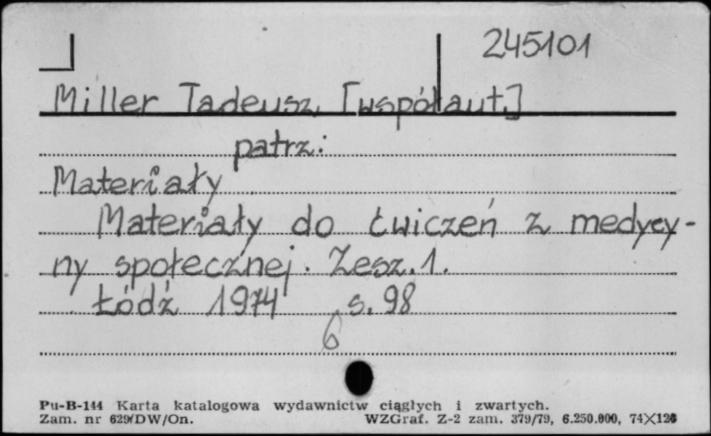 245101
Miller Tadeusz [współaut.]
patrz:
Materiały
Materiały do ćwiczeń z medycy-
ny społecznej. Zesz. 1.
Łódź 1974 s. 98
6
Pu-B-144 Karta katalogowa wydawnictw ciągłych i zwartych.
Zam. nr 629/DW/On. WZGraf. Z-2 zam. 379/79, 6.250.000, 74X126